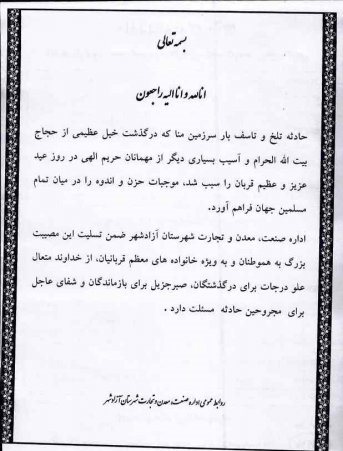 بسمه تعالی
انالله و انا الیه راجعون
حادثه تلخ و تاسف بار سرزمین منا که درگذشت خیل عظیمی از حجاج
بیت الله الحرام و آسیب بسیاری دیگر از مهمانان حریم الهی در روز عید
عزیز و عظیم قربان را سبب شد، موجبات حزن و اندوه را در میان تمام
مسلمین جهان فراهم آورد.
اداره صنعت، معدن و تجارت شهرستان آزادشهر ضمن تسلیت این مصیبت
بزرگ به هموطنان و به ویژه خانواده های معظم قربانیان، از خداوند متعال
علو درجات برای درگذشتگان، صبرجزیل برای بازماندگان و شفای عاجل
برای مجروحین حادثه مسئلت دارد .
روابط عمومی اداره صنعت، معدن و تجارت شهرستان آزادشهر